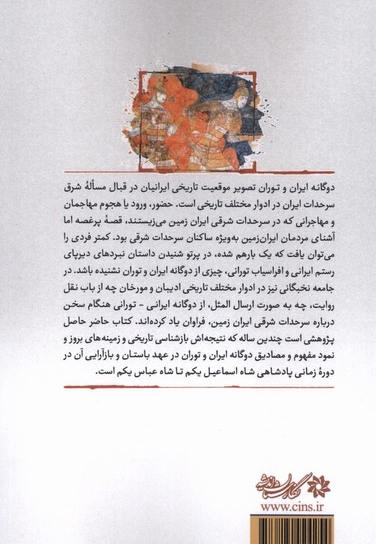 دوگانه ایران و توران تصویر موقعیت تاریخی ایرانیان در قبال مسألهٔ شرق
سرحدات ایران در ادوار مختلف تاریخی است. حضور، ورود یا هجوم مهاجمان
و مهاجرانی که در سرحدات شرقی ایران زمین می‌زیستند، قصهٔ پرغصه اما
آشنای مردمان ایران‌زمین به‌ویژه ساکنان سرحدات شرقی بود. کمتر فردی را
می‌توان یافت که یک بارهم شده، در پرتو شنیدن داستان نبردهای دیرپای
رستم ایرانی و افراسیاب تورانی، چیزی از دوگانه ایران و توران نشنیده باشد. در
جامعه نخبگانی نیز در ادوار مختلف تاریخی ادیبان و مورخان چه از باب نقل
روایت، چه به صورت ارسال المثل، از دوگانه ایرانی - تورانی هنگام سخن
درباره سرحدات شرقی ایران زمین، فراوان یاد کرده‌اند. کتاب حاضر حاصل
پژوهشی است چندین ساله که نتیجه‌اش بازشناسی تاریخی و زمینه‌های بروز و
نمود مفهوم و مصادیق دوگانه ایران و توران در عهد باستان و بازآرایی آن در
دورهٔ زمانی پادشاهی شاه اسماعیل یکم تا شاه عباس یکم است.
نگارستان اندیشه
www.cins.ir